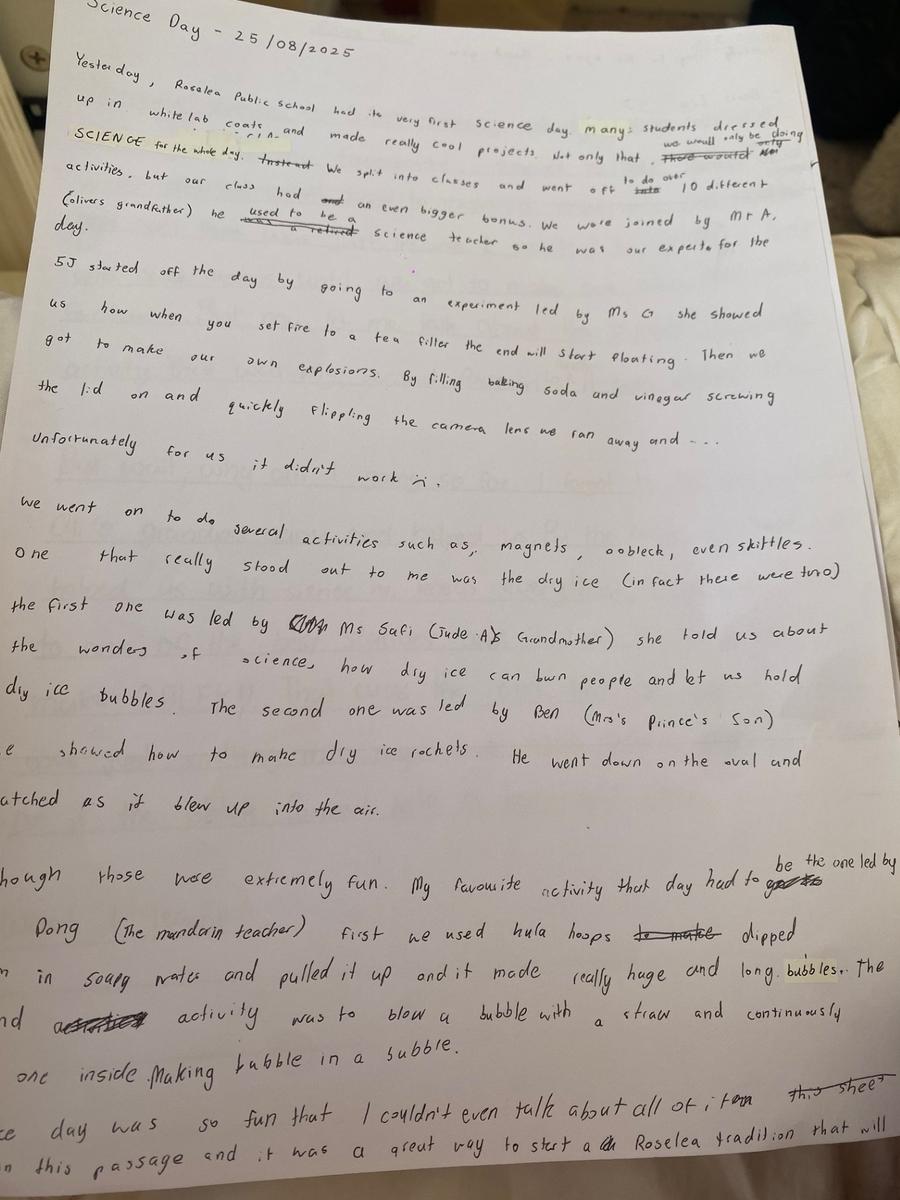 Science Day - 25/08/2025
Yesterday, Roselea Public school had its very first science day. many students dressed
up in white lab coats and made really cool projects. Not only that, we would only be doing
SCIENCE for the whole day. We split into classes and went off to do over 10 different
activities. but our class had an even bigger bonus. We were joined by Mr A.
(olivers grandfather) he used to be a science teacher so he was our experts for the
day.
5J started off the day by going to an experiment led by Ms G she showed
us how when you set fire to a tea filler the end will start floating. Then we
got to make our own explosions. By filling baking soda and vinegar screwing
the lid on and quickly flippling the camera lens we ran away and ....
Unfortunately for us it didn't work :(.
we went on to do several activities such as, magnets, oobleck, even skittles.
one that really stood out to me was the dry ice (in fact there were two)
the first one was led by Ms Safi (Jude .A)s Grandmother) she told us about
the wonders of science, how dry ice can burn people and let us hold
dry ice bubbles. The second one was led by Ben (Mrs's Prince's Son)
e showed how to make dry ice rockets. He went down on the oval and
atched as it blew up into the air.
hough those were extremely fun. My favourite activity that day had to be the one led by
Dong (The mandarin teacher) first we used hula hoops to make dipped
in soapy water and pulled it up and it made really huge and long. bubbles. The
nd activity was to blow a bubble with a straw and continuously
one inside. Making bubble in a bubble.
ce day was so fun that I couldn't even talk about all of it this sheet
n this passage and it was a great way to start a Roselea tradition that will